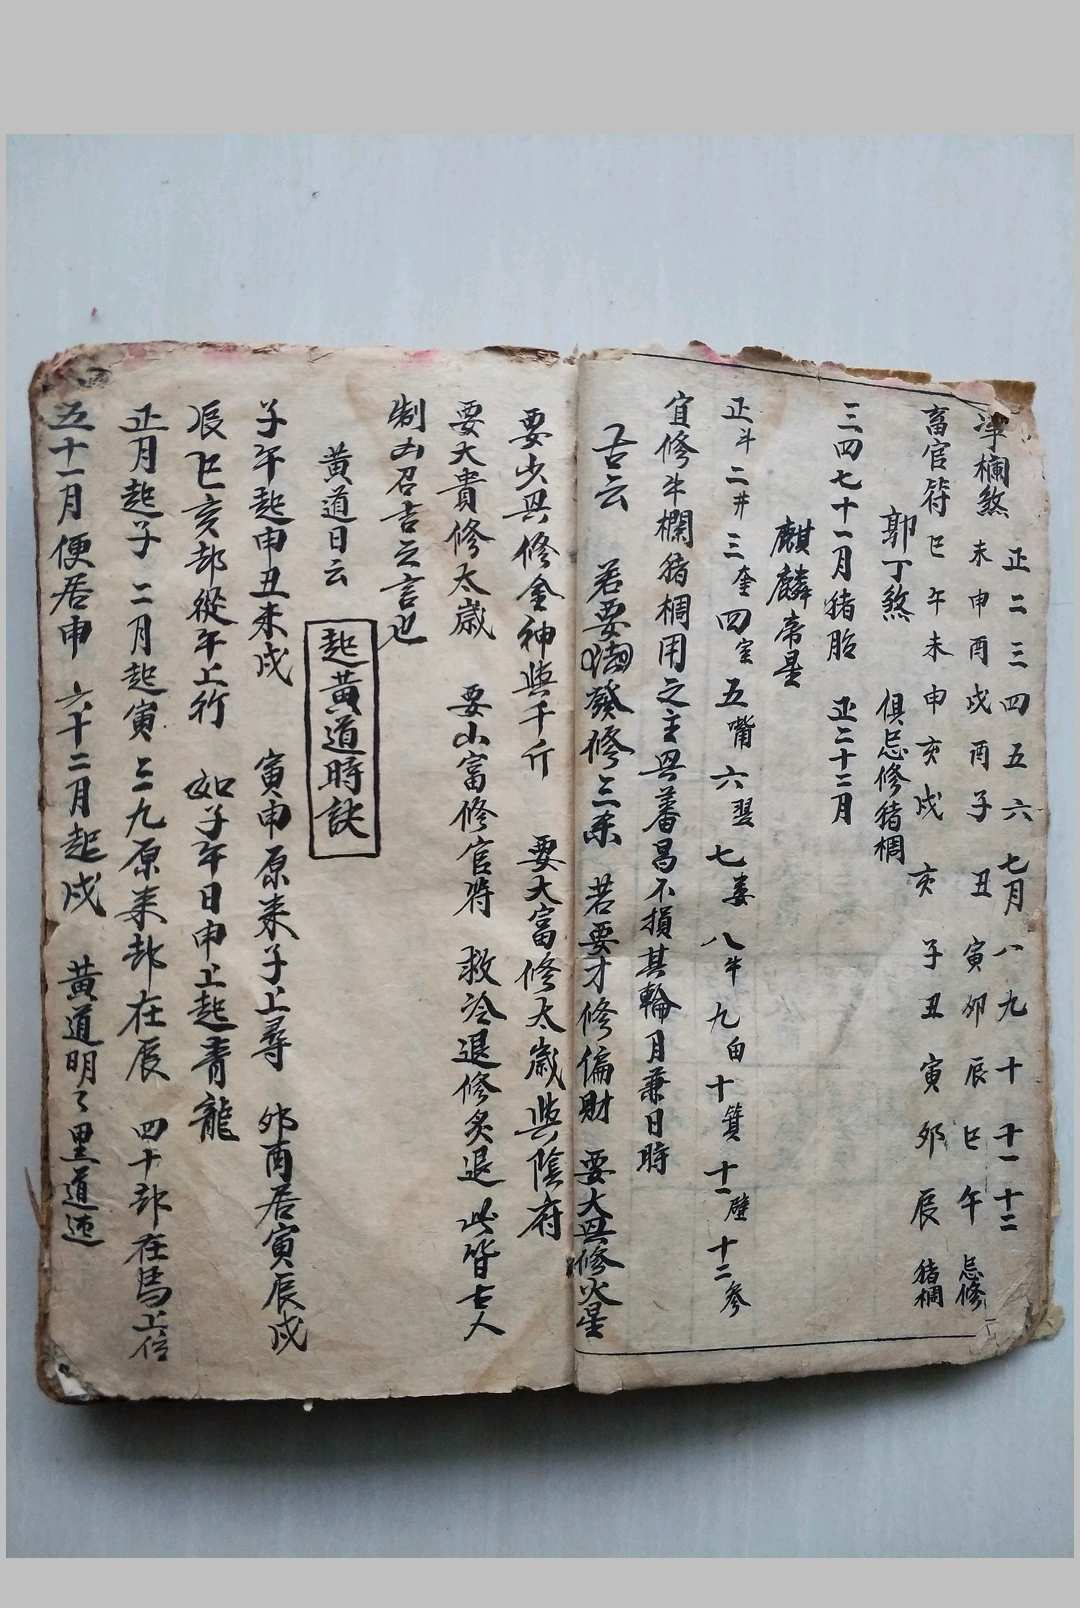 正二三四五六七月八九十十一十二
欄煞 未申酉戌酉子丑寅卯辰巳午 忌修
畜官符 巳午未申亥戌亥子丑寅卯辰 猪椆
郭丁煞 俱忌修猪椆
三四七十一月猪胎 正二十二月
麒麟帝星
正斗二井三奎四室五嘴六翌七婁八牛九由十箕十一壁十二參
宜修牛欄猪椆用之主興蕃昌不損其輪月兼日時
古云 若要發修三杀 若要才修偏財 要大興修火星
要少興修金神與千斤 要大富修太歲與陰府
要大貴修太歲 要小富修官符 救冷退修炙退 此皆古人
制凶召吉之言也
黄道日云
起黃道時訣
子午起申丑未戌 寅申原来子上尋 卯酉居寅辰戌
辰巳亥部從午上行 如子午日申上起青龍
正月起子二月起寅三九原来部在辰 四十部在馬上
五十一月便居申 六十二月起戌 黃道明了里道